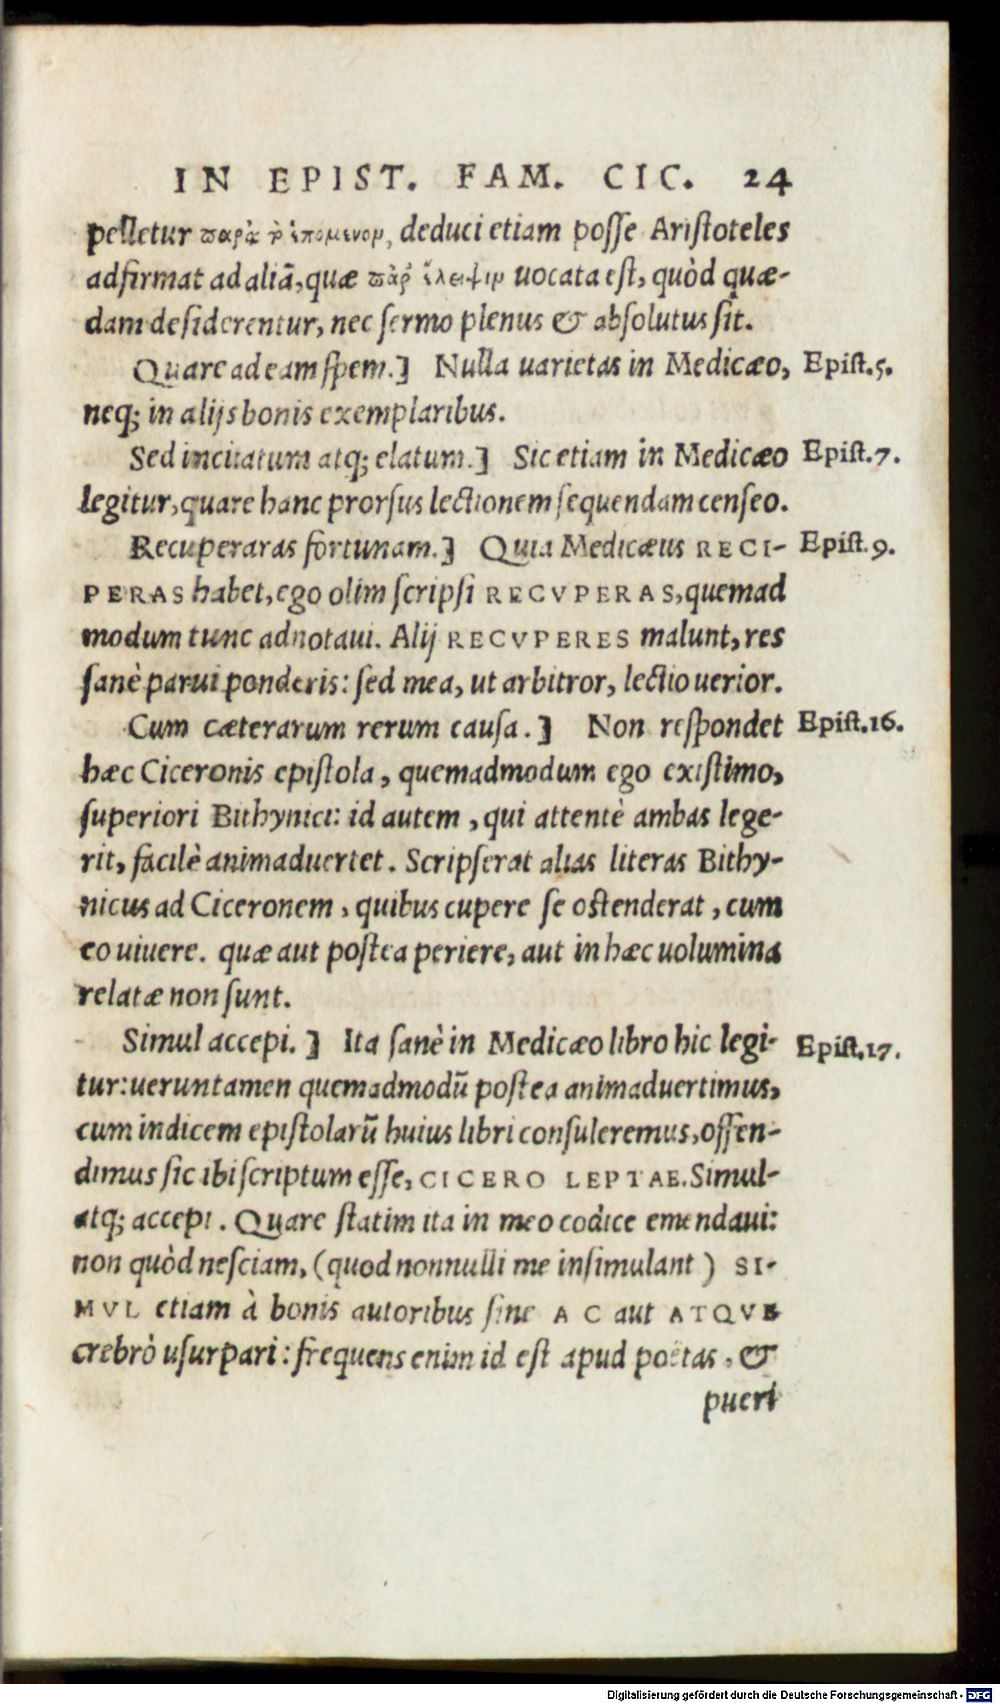 IN EPIST. FAM. CIC. 24
pelletur παρὰ τὸ ἑπόμενον, deduci etiam posse Aristoteles
adfirmat ad aliā, quæ παρ' ἔλειψιν uocata est, quòd quæ-
dam desiderentur, nec sermo plenus & absolutus sit.
Quare ad eam spem.] Nulla uarietas in Medicæo, Epist.5.
neq; in alijs bonis exemplaribus.
Sed incitatum atq; elatum.] Sic etiam in Medicæo Epist.7.
legitur, quare hanc prorsus lectionem sequendam censeo.
Recuperaras fortunam.] Quia Medicæus RECI- Epist.9.
PERAS habet, ego olim scripsi RECVPERAS, quemad
modum tunc adnotaui. Alij RECVPERES malunt, res
sanè parui ponderis: sed mea, ut arbitror, lectio uerior.
Cum cæterarum rerum causa.] Non respondet Epist.16.
hæc Ciceronis epistola, quemadmodum ego existimo,
superiori Bithynici: id autem, qui attentè ambas lege-
rit, facilè animaduertet. Scripserat alias literas Bithy-
nicus ad Ciceronem, quibus cupere se ostenderat, cum
eo uiuere. quæ aut postea periere, aut in hæc uolumina
relatæ non sunt.
Simul accepi.] Ita sanè in Medicæo libro hic legi- Epist.17.
tur: ueruntamen quemadmodū postea animaduertimus,
cum indicem epistolarū huius libri consuleremus, offen-
dimus sic ibi scriptum esse, CICERO LEPTAE. Simul-
atq; accepi. Quare statim ita in meo codice emendaui:
non quòd nesciam, (quod nonnulli me insimulant) SI-
MVL etiam à bonis autoribus sine AC aut ATQVE
crebrò usurpari: frequens enim id est apud poëtas, &
pueri
Digitalisierung gefördert durch die Deutsche Forschungsgemeinschaft - DFG